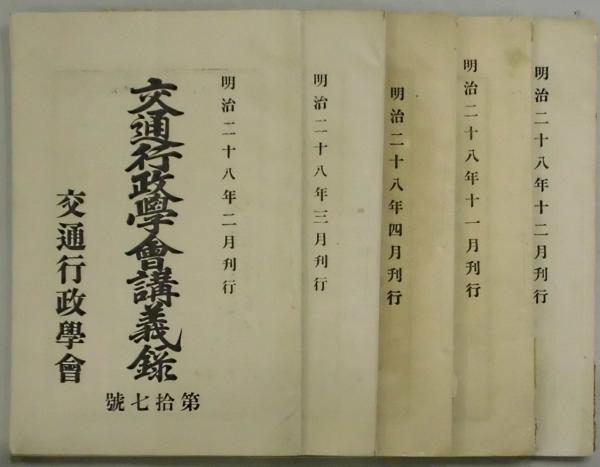 明治二十八年十二月刊行
明治二十八年十一月刊行
明治二十八年四月刊行
明治二十八年三月刊行
明治二十八年二月刊行
交通行政學會講義錄
第拾七號
交通行政學會